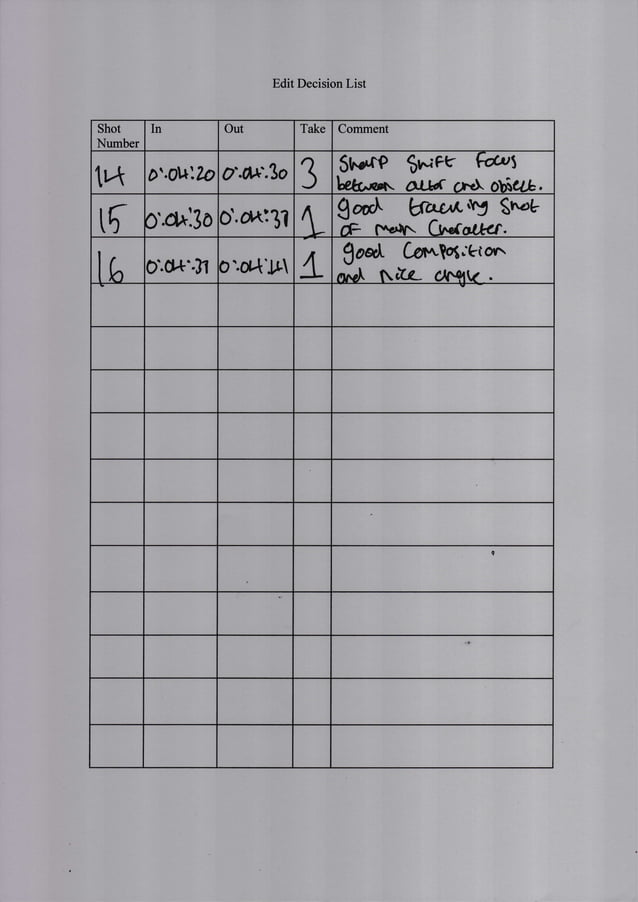 Edit Decision List
Shot Number In Out Take Comment
14 0:04:20 0:04:30 3 Sharp Shift Focus
between actor and object.
15 0:04:30 0:04:37 1 good tracking Shot
of main Character.
16 0:04:37 0:04:41 1 good Composition
and nice angle.